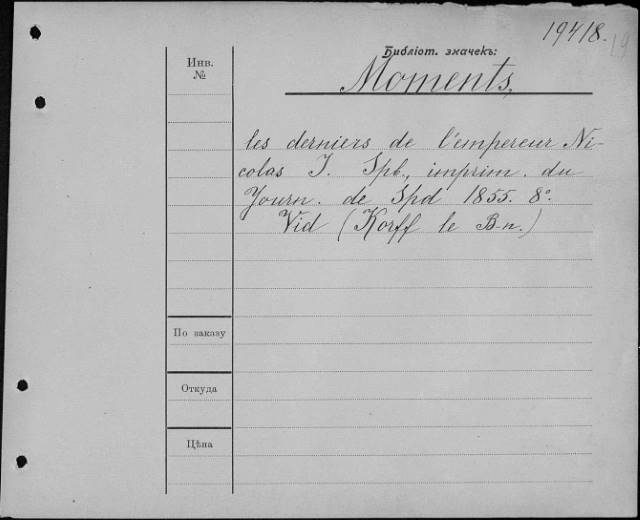 19418.
19
Библіот. значекъ:
Инв.
№
Moments,
les derniers de l'empereur Ni-
colas I. Spb., imprim. du
Journ. de Spd 1855. 8º.
Vid (Korff le B-n.)
По заказу
Откуда
Цѣна